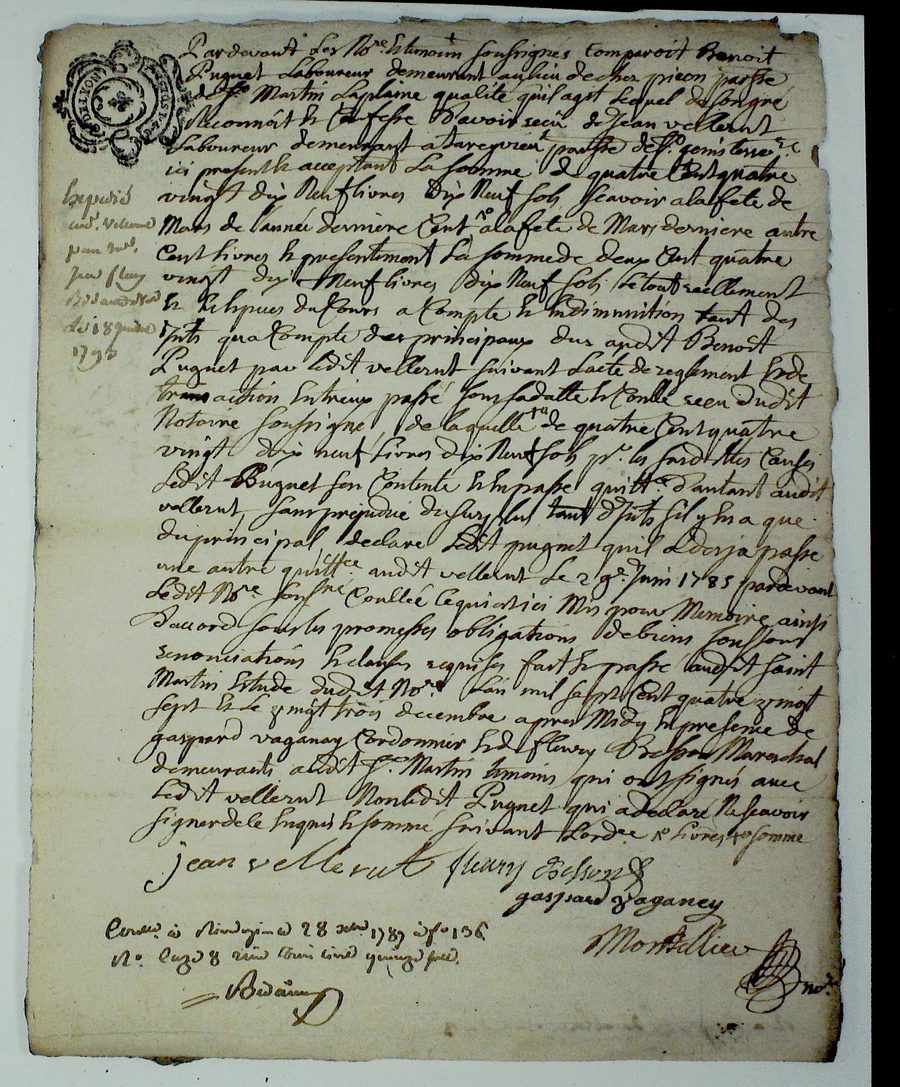 Pardevant Les No.re Et temoins soussignés Comparoit Benoit
Puguet Laboureur demeurant au lieu de chez pieon parsse
de S.t Martin Laplaine qualité qu'il agit Lequel de son gré
Reconnoit & Confesse D'avoir recu de Jean vellerut
Laboureur demeurant a parsse de S.t
ici present & acceptant La somme de quatre Cent quatre
vingt Dix Neuf livres Dix Neuf sols scavoir a la fete de
Mars de l'année derniere Cent a la fete de Mars derniere autre
Cent livres & presentement La somme de deux Cent quatre
vingt dix Neuf livres Dix Neuf sols Le tout reellement
& Especes du Cours a Compte & En diminution tant des
Jnts qu'a Compte des principaux dus audit Benoit
Puguet par ledit vellerut suivant L'acte de reglement & de
transaction Entr'eux passé sous sa datte & Conllé recu dudit
Notaire soussigné, de laquelle de quatre Cent quatre
vingt dix neuf Livres dix Neuf sols pr. les susdittes Causes
Ledit Puguet s'en Contente & En passe quittce d'autant audit
vellerut, sans prejudice du surplus tant d'Jnts s'il y En a que
du principal declare Ledit puguet qu'il a desja passé
une autre quittce. audit vellerut Le 29e. Juin 1785 pardevant
Ledit No.re sousné Conllée Lequi est ici Mis pour Memoire ainsi
D'accord sous les promesses obligations de biens soussions
renonciations & clauses requises fait & passé audit saint
Martin Estude dudit No.re L'an mil sept Cent quatre vingt
sept & Le vingt trois decembre apres Midy En presence de
gaspard vaganay Cordonnier & de fleury Besson Mareschal
demeurants audit S.t Martin temoins qui ont signés avec
Ledit vellerut Non ledit Puguet qui a declaré Ne scavoir
signer de ce Enquis & sommé suivant L'ordce. livres somme
jean vellerut fleury Besson
gaspard vaganey
Montellier
no.re
Expedié
aud. vellerut
par
18
1793
Conllé à 28 xbre 1787 fo 136
No. 8 livre quinze sols.